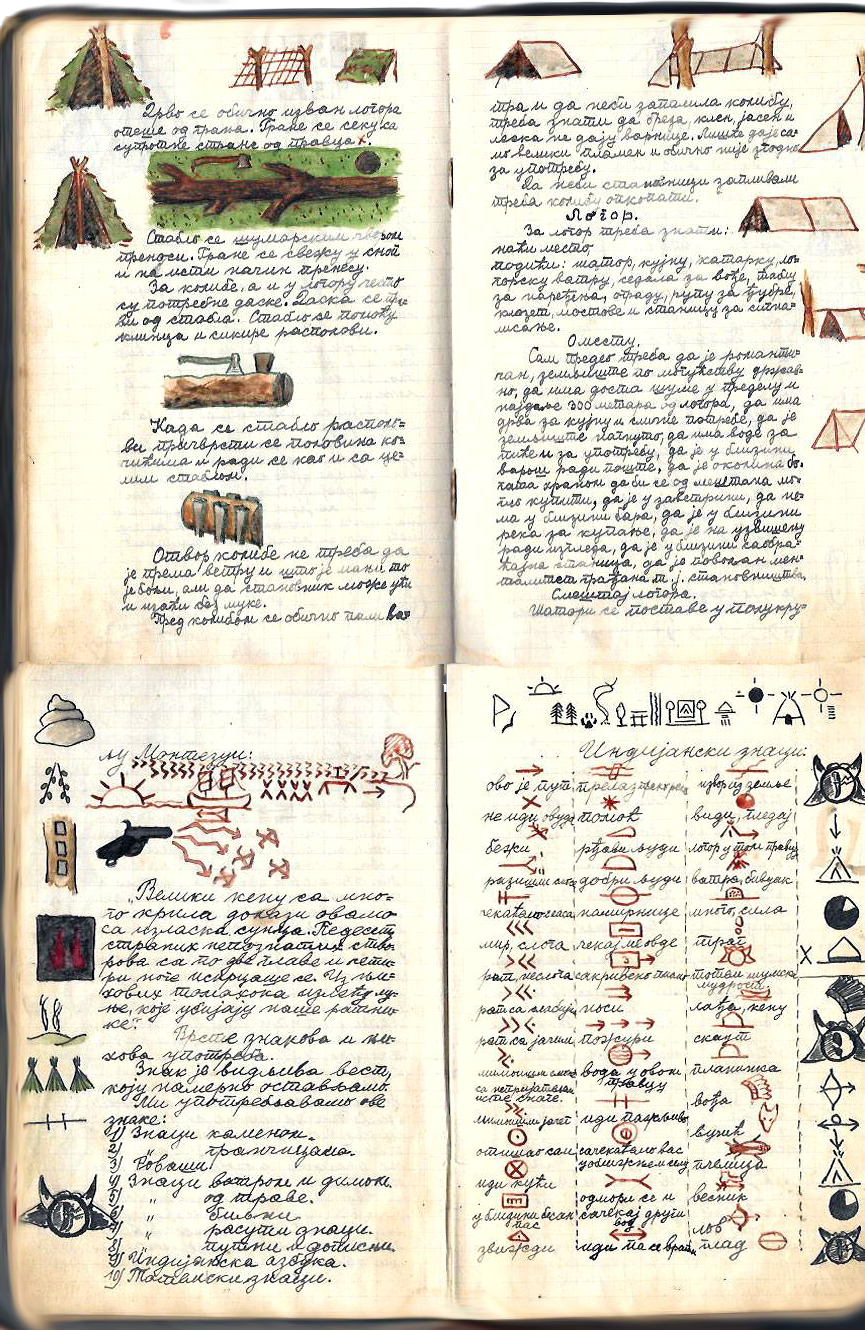 Дрво се обично изван логора
отеше од грана. Гране се секу са
супротне стране од правца х.
Стабло се шумарским чвором
преноси. Гране се свежу у сноп
и на исти начин пренесу.
За колибе, а и у логору често
су потребне даске. Даска се пра-
ви од стабла. Стабло се помоћу
клинца и сикире располови.
Када се стабло располо-
ви причврсти се половина ко-
чићима и ради се као и са це-
лим стаблом.
Отвор колибе не треба да
је према ветру и што је мањи то
је бољи, али да становник може ући
и изаћи без муке.
Пред колибом се обично пали ва-
тра и да неби запалила колибу,
треба знати да бреза, клен, јасен и
леска не дају варнице. Лишће даје са-
мо велики пламен и обично није згодно
за употребу.
Да неби становници запливали
треба колибу опкопати.
Логор.
За логор треба знати:
наћи место
подићи: шатор, кујну, катарку, ло-
горску ватру, седала за вође, таблу
за наређења, ограду, рупу за ђубре,
клозет, мостове и станицу за сигна-
лисање.
О месту.
Сам предео треба да је романти-
чан, земљиште по могућству држав-
но, да има доста шуме у пределу и
најдаље 300 метара од логора, да има
дрва за кујну и личне потребе, да је
земљиште нагнуто, да има воде за
пиће и за употребу, да је у близини
варош ради поште, да је околина бо-
гата храном да би се од мештана мо-
гло купити, да је у заветрини, да не-
ма у близини бара, да је у близини
река за купање, да је на узвишењу
ради изгледа, да је у близини саобра-
ћајна станица, да је повољан мен-
талитет грађана т.ј. становништва.
Смештај логора.
Шатори се поставе у полукру-
љу Монтезци:
„Велики кену са мно-
го крила долази овамо
са изласка сунца. Педесет
страних непознатих ство-
рова са по две главе и чети-
ри ноге искрцаше се. Из њи-
хових томахока излећу му-
ње, које убијају наше ратни-
ке."
Врсте знакова и њи-
хова употреба.
Знак је видљива вест,
коју намерно остављамо.
Ми употребљавамо ове
знаке:
1) Знаци каменом.
2) „ гранчицама.
3) Роваши
4) Знаци ватром и димом.
5) „ од траве.
6) „ бивши
7) „ расути знаци.
8) „ путни и дописни.
9) Индијанска азбука.
10) Томански знаци.
Индијански знаци:
ово је пут прелаз преко реке извор из земље
не иди овуда помоћ види, гледај
бежи рђави људи логор у том правцу
разишли смо се добри људи ватра, бивуак
намирнице много, сила
мир, слога чекај ме овде траг
рат, неслога сакривено писмо тотем шумске
мудрости
носи лађа, кену
рат са јачим пожури скаут
вода у овом планинка
правцу
вођа
иди пажљиво вучић
отишао сам сачекаћемо вас пчелица
у оближњем селу
иди кући одмори се и весник
у близини је сан сачекај други
нас вод лов
звижди иди па се врати глад